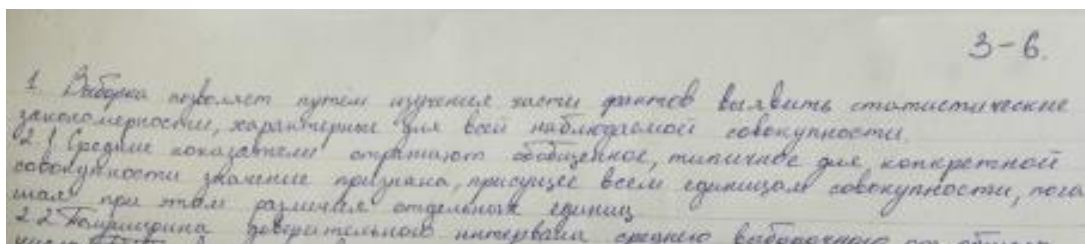 3-6.
1. Выборка позволяет путём изучения части фактов выявить статистические
закономерности, характерные для всей наблюдаемой совокупности.
2.1 Средние показатели отражают обобщенное, типичное для конкретной
совокупности значение признака, присущее всем единицам совокупности, пога
шая при этом различия отдельных единиц
2.2 Полуширина доверительного интервала среднего выборочного